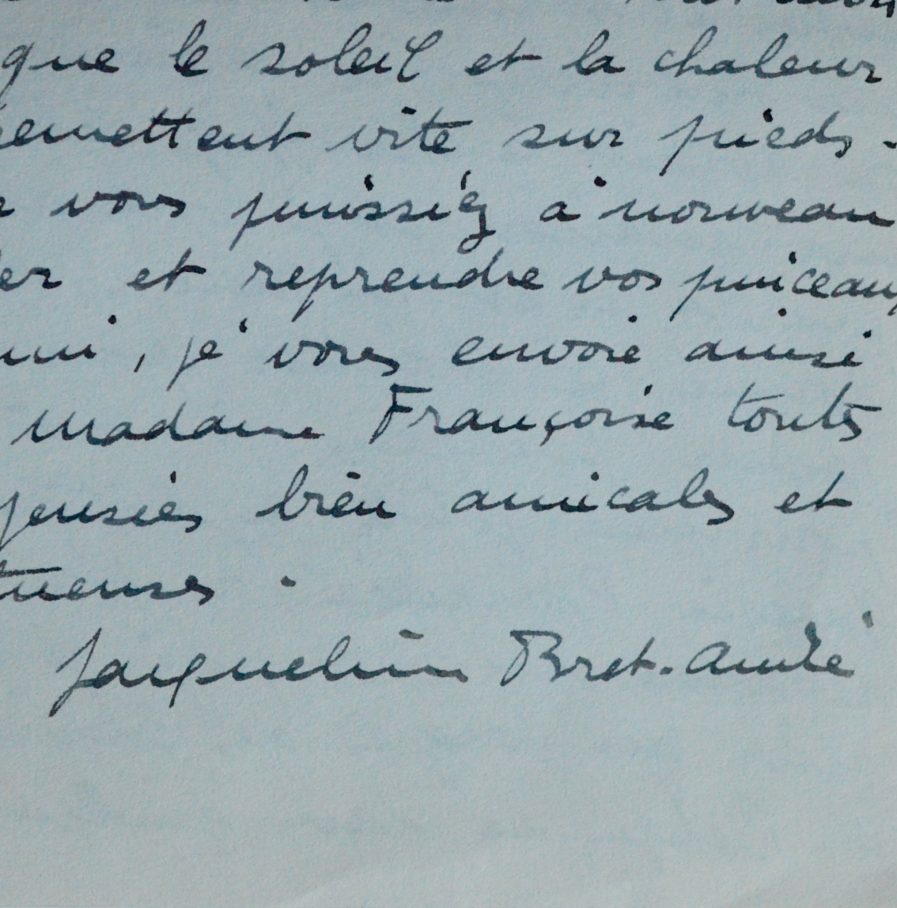 que le soleil et la chaleur
remettent vite sur pieds -
vous puissiez à nouveau
et reprendre vos pinceaux
, je vous envoie ainsi
madame Françoise toutes
pensées bien amicales et
tueuses .
Jacqueline Bret-André